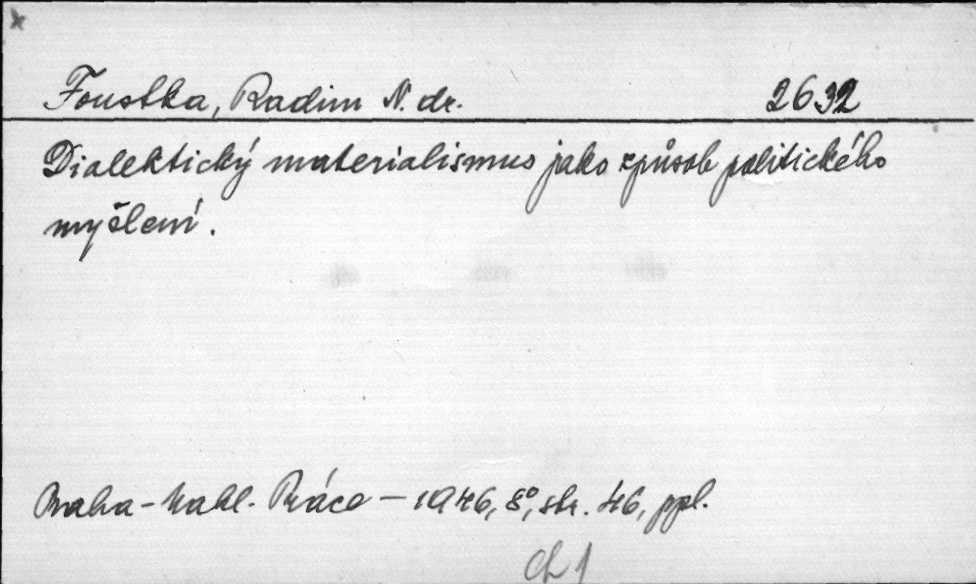 Foustka, Radim N. dr. 2632
Dialektický materialismus jako způsob politického
myšlení.
Praha - Nakl. Práce — 1946, 8°, str. 46, ppl.